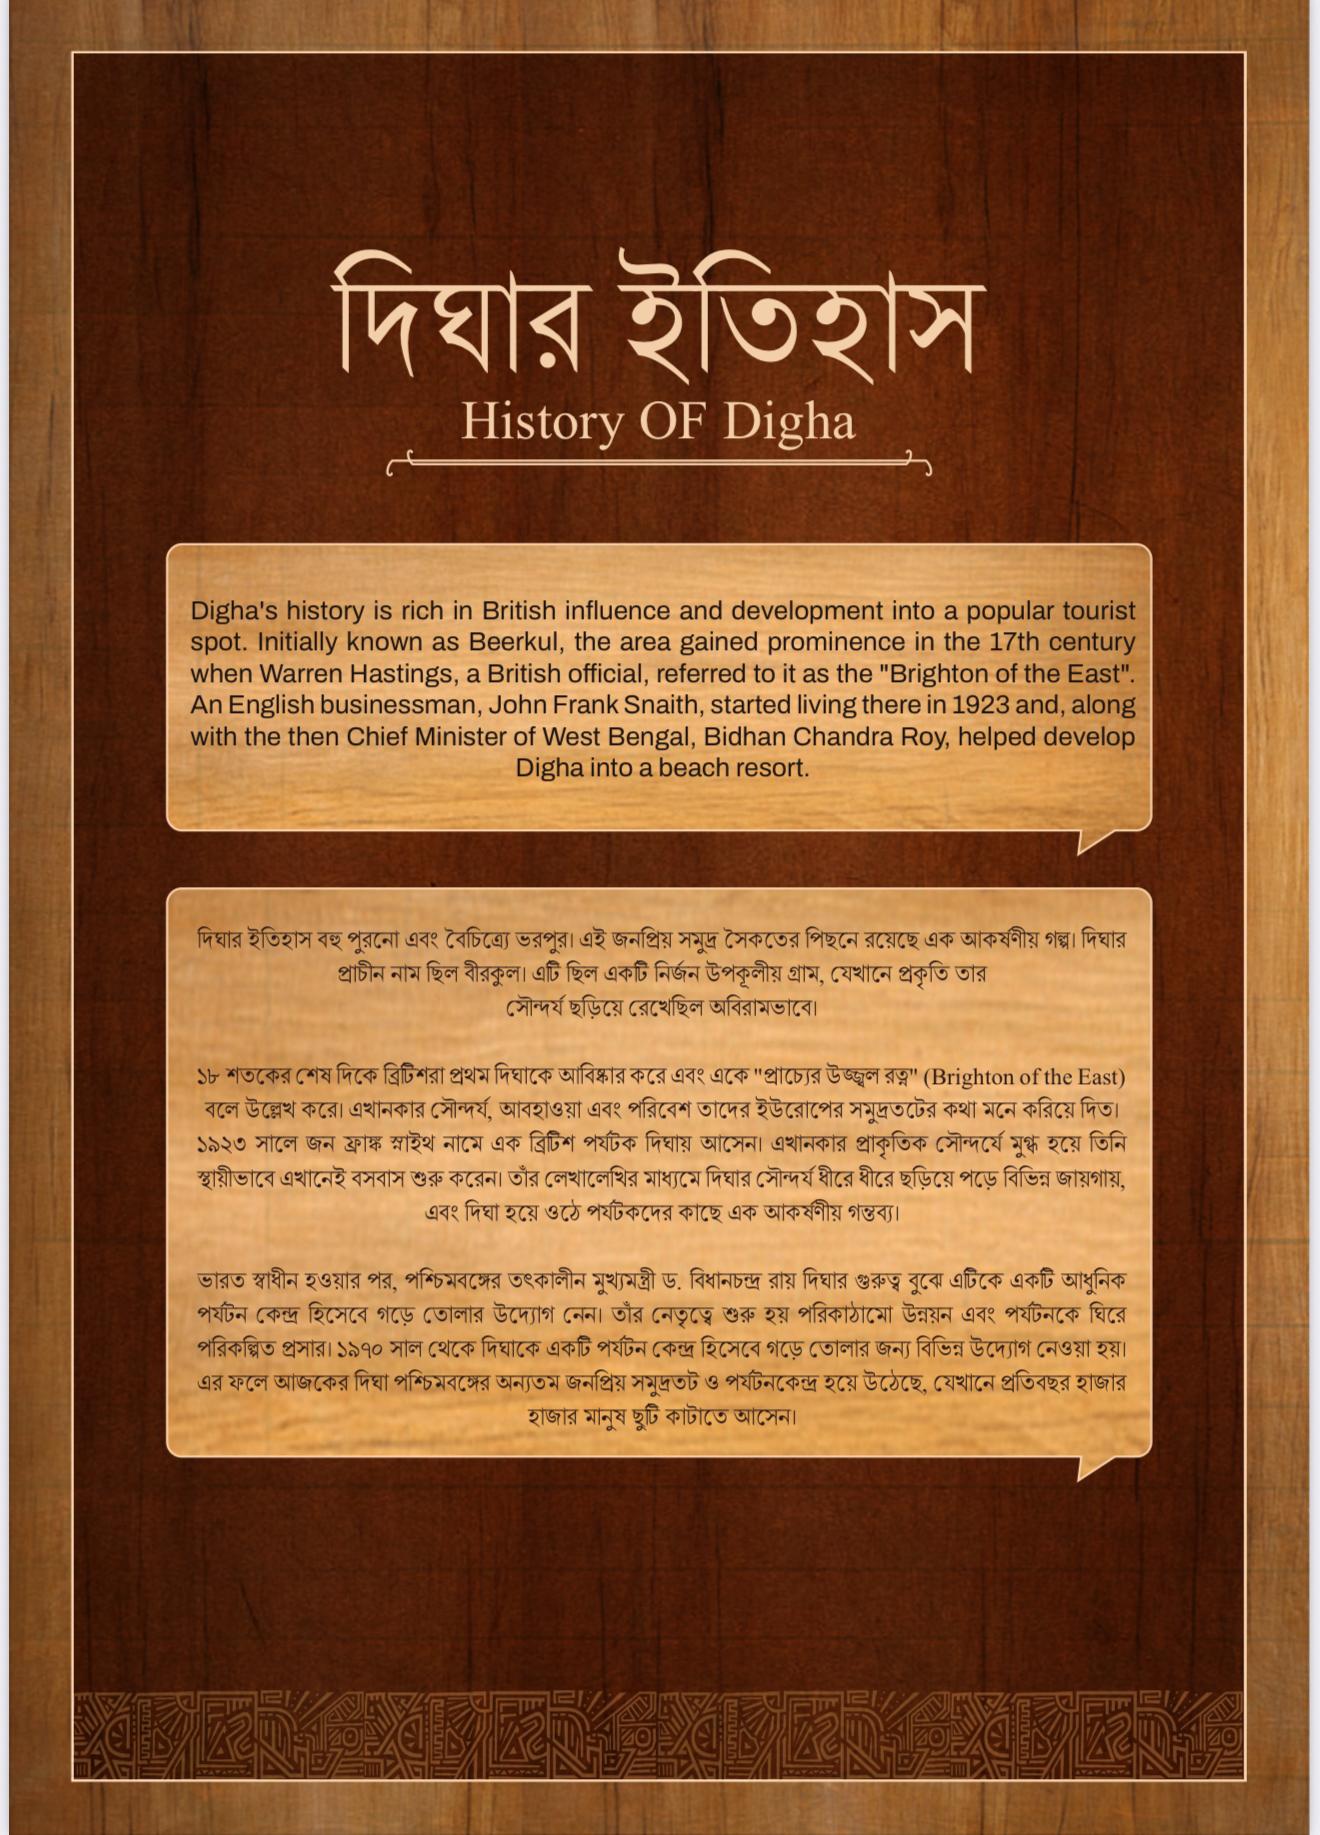 দিঘার ইতিহাস
History OF Digha
Digha's history is rich in British influence and development into a popular tourist
spot. Initially known as Beerkul, the area gained prominence in the 17th century
when Warren Hastings, a British official, referred to it as the "Brighton of the East".
An English businessman, John Frank Snaith, started living there in 1923 and, along
with the then Chief Minister of West Bengal, Bidhan Chandra Roy, helped develop
Digha into a beach resort.
দিঘার ইতিহাস বহু পুরনো এবং বৈচিত্র্যে ভরপুর। এই জনপ্রিয় সমুদ্র সৈকতের পিছনে রয়েছে এক আকর্ষণীয় গল্প। দিঘার
প্রাচীন নাম ছিল বীরকুল। এটি ছিল একটি নির্জন উপকূলীয় গ্রাম, যেখানে প্রকৃতি তার
সৌন্দর্য ছড়িয়ে রেখেছিল অবিরামভাবে।
১৮ শতকের শেষ দিকে ব্রিটিশরা প্রথম দিঘাকে আবিষ্কার করে এবং একে "প্রাচ্যের উজ্জ্বল রত্ন" (Brighton of the East)
বলে উল্লেখ করে। এখানকার সৌন্দর্য, আবহাওয়া এবং পরিবেশ তাদের ইউরোপের সমুদ্রতটের কথা মনে করিয়ে দিত।
১৯২৩ সালে জন ফ্রাঙ্ক স্নাইথ নামে এক ব্রিটিশ পর্যটক দিঘায় আসেন। এখানকার প্রাকৃতিক সৌন্দর্যে মুগ্ধ হয়ে তিনি
স্থায়ীভাবে এখানেই বসবাস শুরু করেন। তাঁর লেখালেখির মাধ্যমে দিঘার সৌন্দর্য ধীরে ধীরে ছড়িয়ে পড়ে বিভিন্ন জায়গায়,
এবং দিঘা হয়ে ওঠে পর্যটকদের কাছে এক আকর্ষণীয় গন্তব্য।
ভারত স্বাধীন হওয়ার পর, পশ্চিমবঙ্গের তৎকালীন মুখ্যমন্ত্রী ড. বিধানচন্দ্র রায় দিঘার গুরুত্ব বুঝে এটিকে একটি আধুনিক
পর্যটন কেন্দ্র হিসেবে গড়ে তোলার উদ্যোগ নেন। তাঁর নেতৃত্বে শুরু হয় পরিকাঠামো উন্নয়ন এবং পর্যটনকে ঘিরে
পরিকল্পিত প্রসার। ১৯৭০ সাল থেকে দিঘাকে একটি পর্যটন কেন্দ্র হিসেবে গড়ে তোলার জন্য বিভিন্ন উদ্যোগ নেওয়া হয়।
এর ফলে আজকের দিঘা পশ্চিমবঙ্গের অন্যতম জনপ্রিয় সমুদ্রতট ও পর্যটনকেন্দ্র হয়ে উঠেছে, যেখানে প্রতিবছর হাজার
হাজার মানুষ ছুটি কাটাতে আসেন।